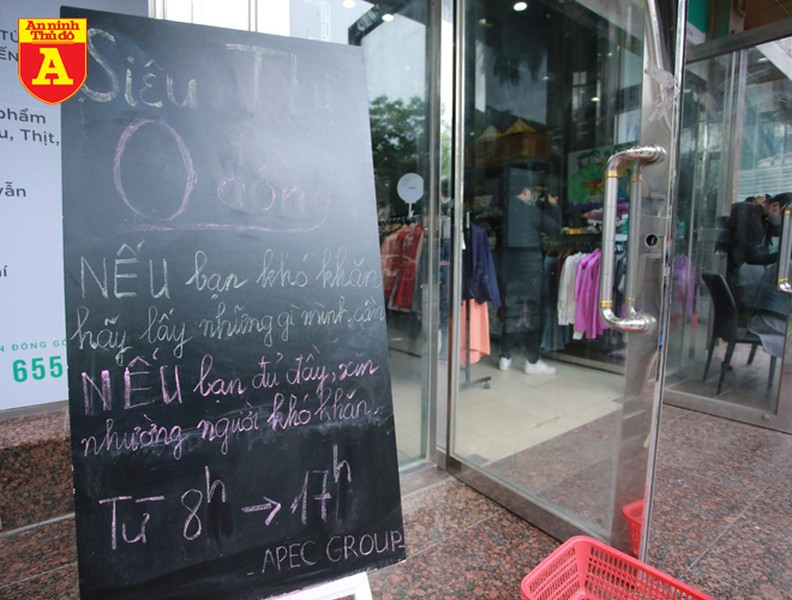 An ninh
Thủ đô
A
Siêu Thị
0 đồng
NẾU bạn khó khăn
hãy lấy những gì mình cần
NẾU bạn đủ đầy, xin
nhường người khó khăn.
Từ 8h → 17h
APEC GROUP
phẩm
u, Thịt,
vẫn
655